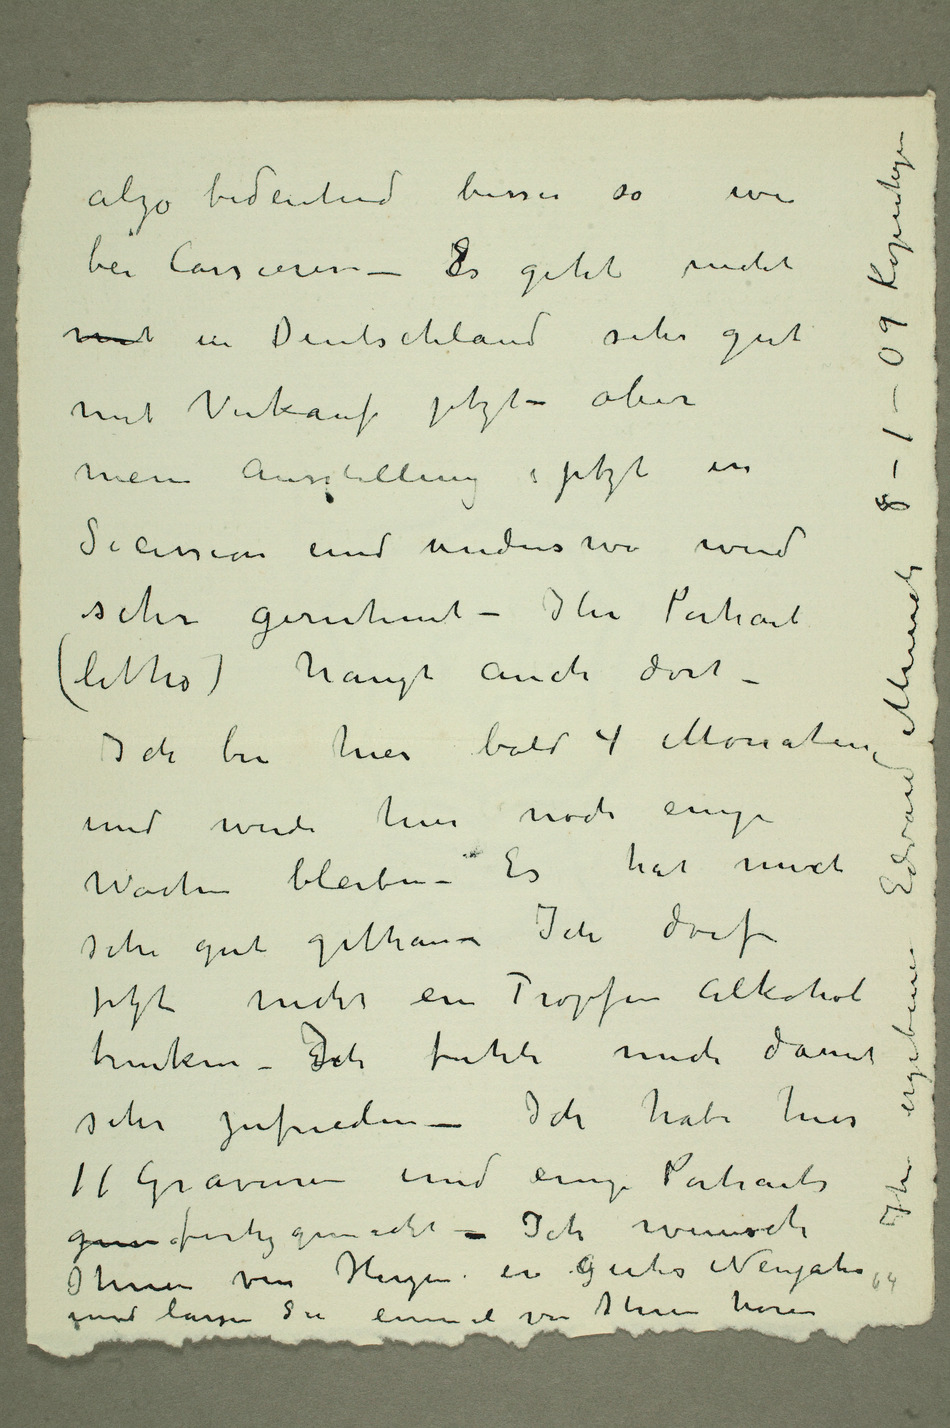 algo bedeutend besser so wie
bei Cassierer – Es geht nicht
mit in Deutschland sehr gut
mit Verkauf jetzt – aber
mein Ausstellung jetzt in
Secession und anderswo wird
sehr gerühmt – Ihr Portrait
(litho) hängt auch dort –
Ich bin hier bald 4 Monaten
und werde hier noch einige
Wochen bleiben – Es hat mich
sehr gut gethan – Ich darf
jetzt nicht ein Tropfen Alkohol
trinken – Ich fühle mich damit
sehr zufrieden – Ich habe hier
11 Gravuren und einige Portraits
fertig gemacht – Ich wünsche
Ihnen von Herzen ein Gutes Neujahr
und lassen Sie einmal von Ihnen hören
Ihr ergebener Edvard Munch 8–1–09 Kopenhagen
64